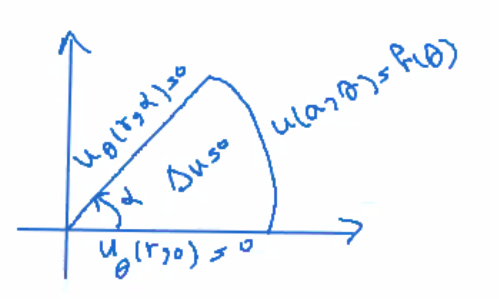 u_θ(r,α)=0
u(a,θ)=f(θ)
Δu=0
α
u_θ(r,0)=0